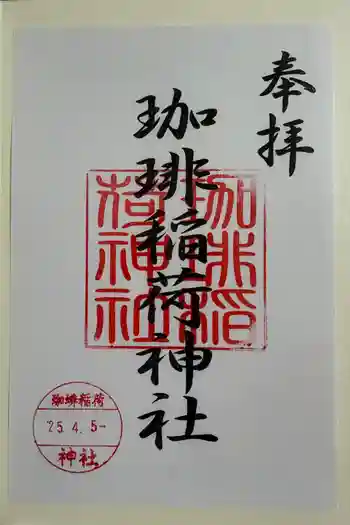 奉拝
珈琲稲荷神社
珈琲稲
荷神社
珈琲稲荷
'25.4.5-
神社